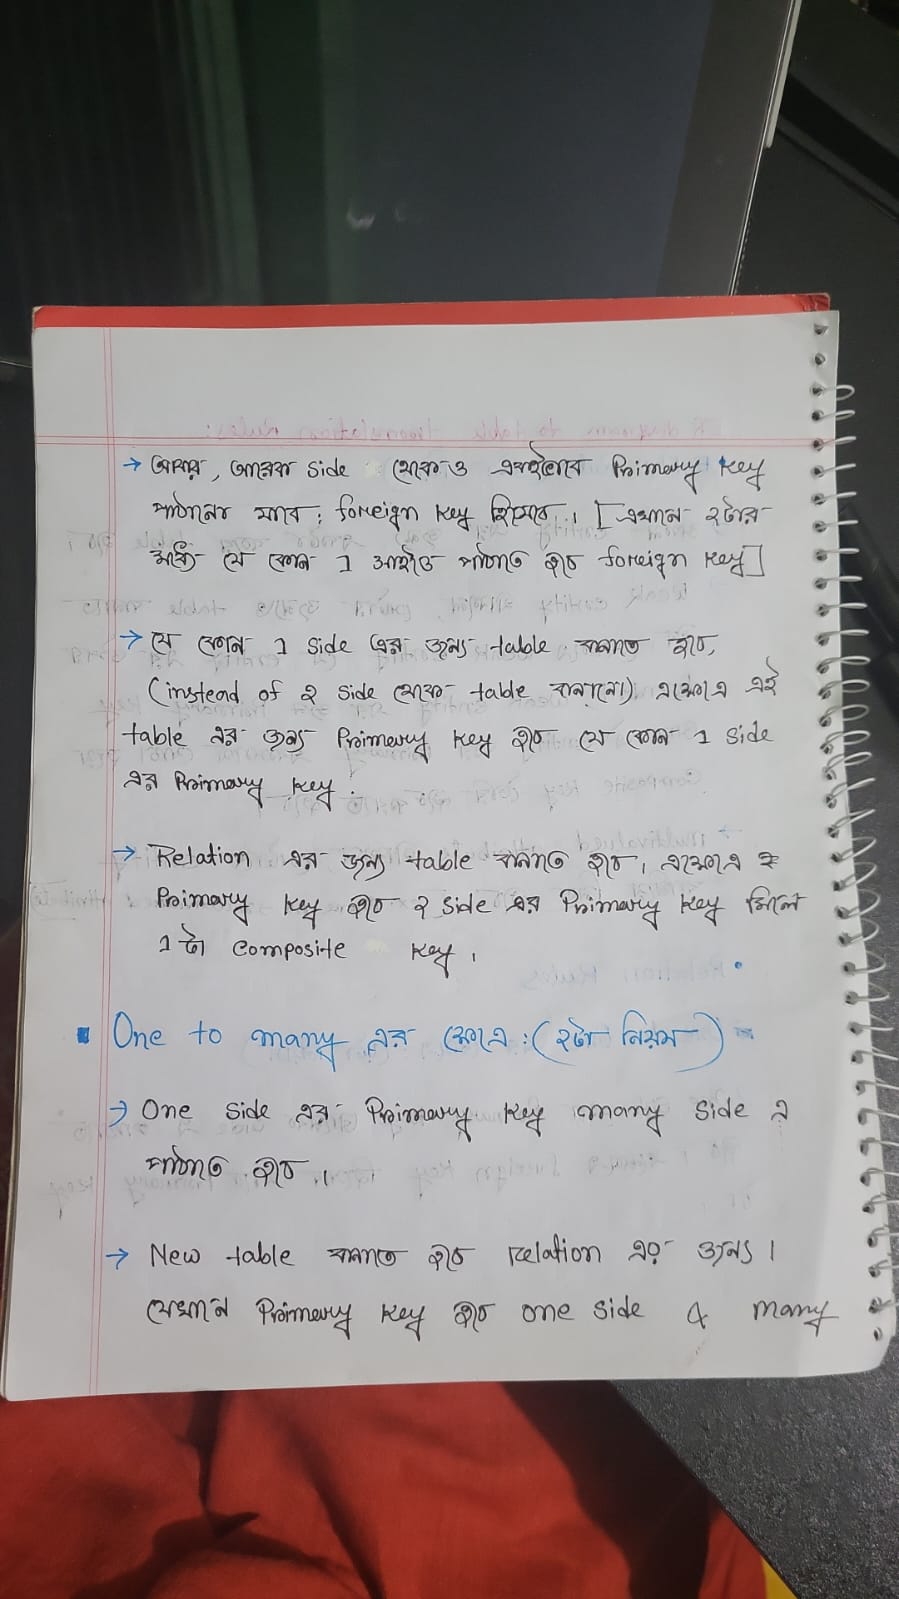 → আবার, আরেক side থেকেও একইভাবে Primary key
পাঠানো যাবে; foreign key হিসেবে। [এখানে ২টার
মধ্যে যে কোন 1 সাইডে পাঠাতে হবে foreign key]
→ যে কোন 1 side এর জন্য table বানাতে হবে,
(instead of ২ side থেকে table বানানো) এক্ষেত্রে এই
table এর জন্য Primary key হবে যে কোন 1 side
এর Primary key.
→ Relation এর জন্য table বানাতে হবে, এক্ষেত্রে
Primary key হবে ২ side এর Primary key মিলে
1 টা composite key.
▪ One to many এর ক্ষেত্রে: (২টা নিয়ম)
→ One side এর Primary key many side এ
পাঠাতে হবে।
→ New table বানাতে হবে Relation এর জন্য।
যেখানে Primary key হবে one side & many